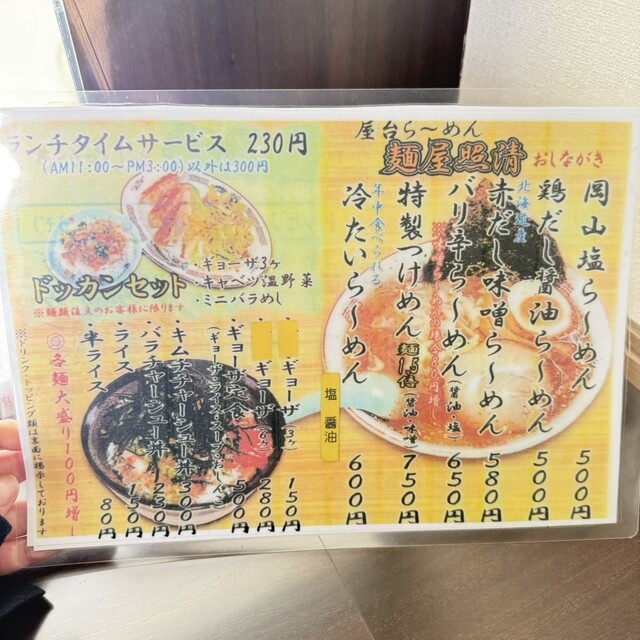 屋台ら〜めん
麺屋照清 おしながき
岡山塩ら〜めん 500円
鶏だし醤油ら〜めん 500円
北海道産
赤だし味噌ら〜めん 580円
バリ辛ら〜めん(醤油・塩) 650円
特製つけめん 麺1.5倍(醤油・味噌) 750円
年中食べられる
冷たいら〜めん 塩 醤油 600円
ランチタイムサービス 230円
(AM11:00〜PM3:00)以外は300円
ドッカンセット
※麺類注文のお客様に限ります
・ギョーザ3ヶ
・キャベツ温野菜
・ミニバラめし
・ギョーザ(3ヶ) 150円
・ギョーザ(6ヶ) 280円
・ギョーザ定食 500円
(ギョーザ・ライス・スープ・おしんこ)
・キムチチャーシュー丼 300円
・バラチャーシュー丼 250円
・ライス 150円
・半ライス 80円
◎各麺大盛り100円増し
※ドリンク・トッピング類は裏面に掲示しております